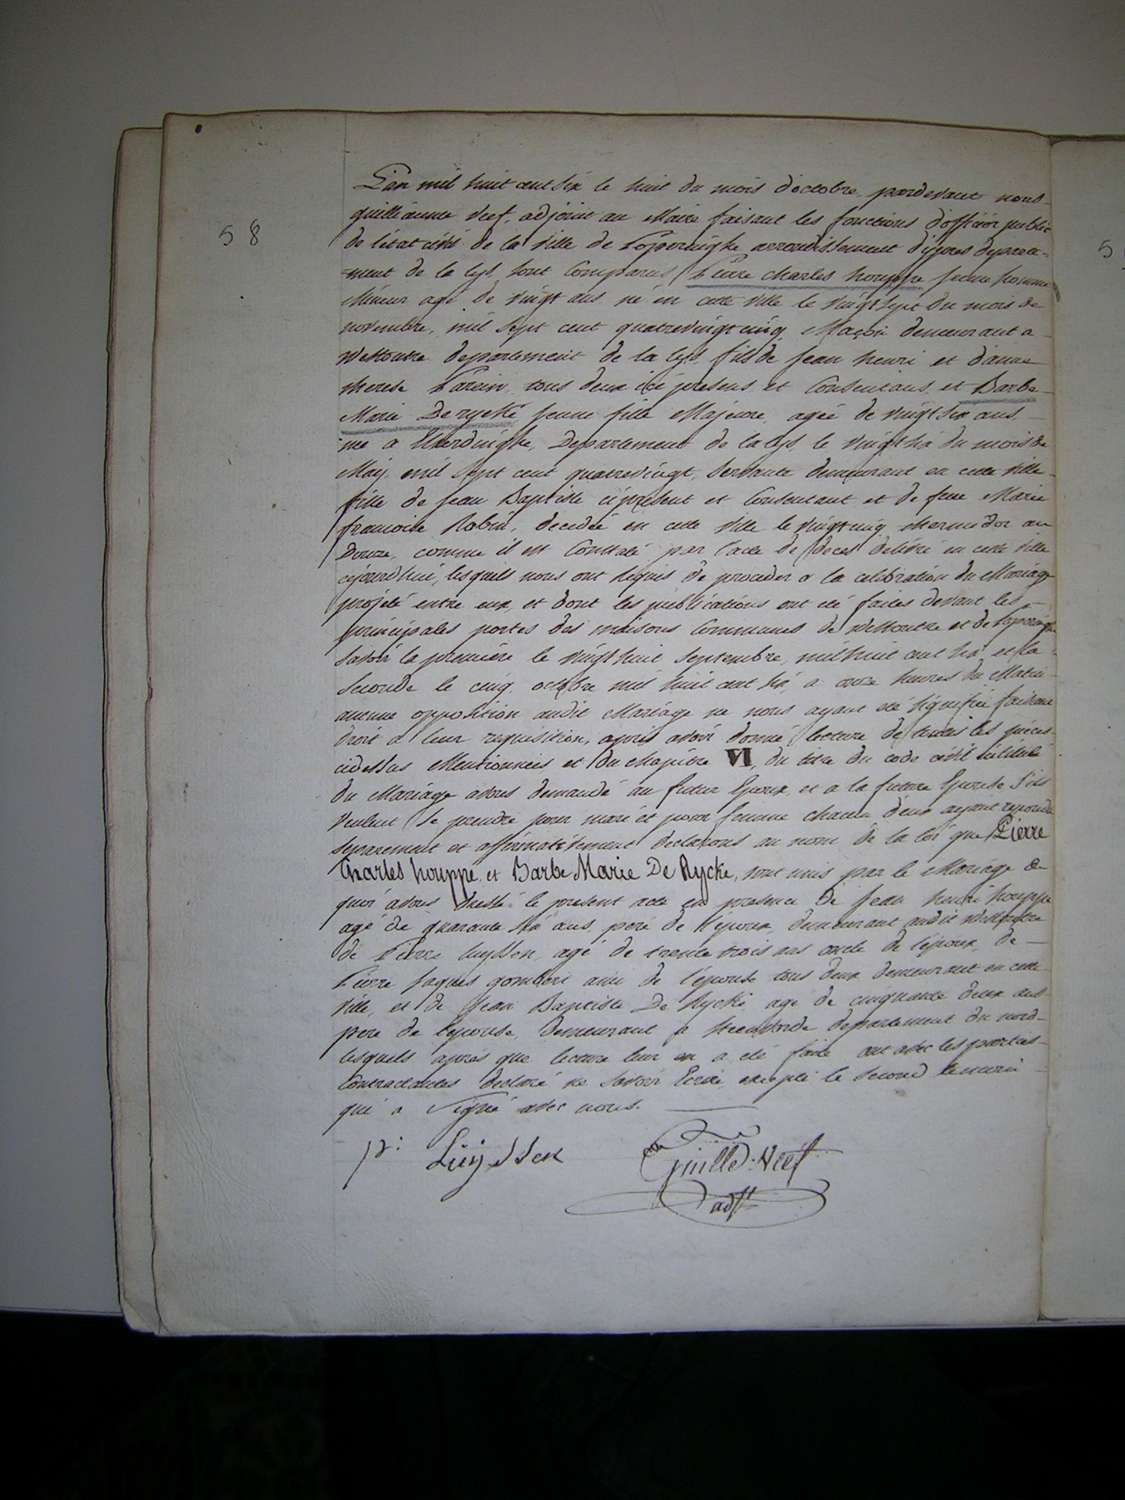 58
L'an mil huit cent six le huit du mois d'octobre, pardevant nous
guilliaume Neef, adjoint au Maire faisant les fonctions d'officier public
de l'état civil de la ville de Poperinghe arrondissement d'ypres departe=
=ment de la Lys, sont Comparus Pierre Charles houppe jeune homme
Mineur agé de vingt ans né en cette ville le vingt sept du mois de
novembre, mil sept cent quatrevingt cinq Maçon demeurant a
Westoutre departement de la Lys, fils de Jean henri et d'anne
therese tous deux ici présens et Consentans, et Barbe
Marie De rycke jeune fille Majeure, agée de vingt six ans
née a Departement de la Lys, le vingt six du mois de
May, mil sept cent quatrevingt, Servante demeurant en cette ville
fille de Jean Baptiste ci présent et Consentant et de feue Marie
francoise Robin, decedée en cette ville le vingt cinq thermidor an
Douze, comme il est Constaté par l'acte de deces delivré en cette ville
cejourd'hui, lesquels nous ont requis de proceder a la celebration du Mariage
projeté entre eux, et dont les publications ont été faites devant les
principales portes des maisons Communes de Westoutre et de Poperinghe
Savoir la première le vingt huit Septembre, mil huit cent six et la
Seconde le cinq octobre mil huit cent six a onze heures du Matin
aucune opposition audit Mariage ne nous ayant été signifiée faisant
droit a leur requisition, apres avoir donné lecture de toutes les pièces
cidessus Mentionnées et du chapitre VI, du titre du code civil intitulé
du Mariage avons demandé au futur Epoux et a la future Epouse S'ils
veulent se prendre pour mari et pour femme chacun d'eux ayant repondu
separement et affirmativement declarons au nom de la loi que Pierre
Charles houppe et Barbe Marie De Rycke, sont unis par le Mariage de
quoi avons dressé le present acte en presence de Jean henri houppe
agé de quarante six ans, père de l'époux, demeurant audit Westoutre
de Pierre Luyssen, agé de trente trois ans oncle de l'époux, de
Pierre Jaques ami de l'épouse tous deux demeurant en cette
ville, et de Jean Baptiste De Rycke agé de cinquante deux ans
père de l'épouse, demeurant a Steenvorde departement du nord
lesquels après que lecture leur en a été faite ont avec les parties
Contractantes declaré ne savoir Ecrire excepté le second temoin
qui a Signé avec nous.
p: Luyssen
Guille: Neef
adjt
5